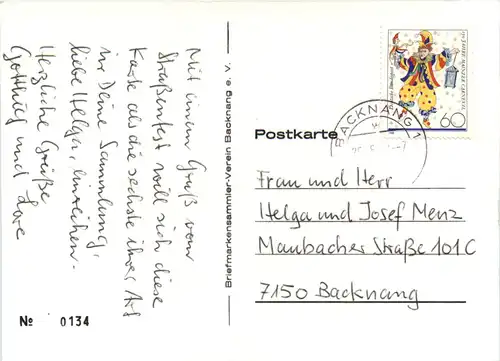 Mit einem Gruß vom
Straßenfest will sich diese
Karte als die sechste ihrer Art
in Deine Sammlung,
liebe Helga, einreihen.
Herzliche Grüße
Gottlieb und Lore
No 0134
Briefmarkensammler-Verein Backnang e. V.
Postkarte
BACKNANG 1
60
Frau und Herr
Helga und Josef Menz
Maubacher Straße 101C
7150 Backnang